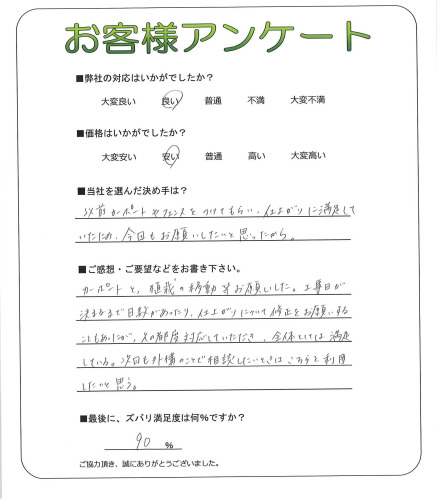 お客様アンケート
■弊社の対応はいかがでしたか？
大変良い 良い 普通 不満 大変不満
■価格はいかがでしたか？
大変安い 安い 普通 高い 大変高い
■当社を選んだ決め手は？
以前カーポートやフェンスをつけてもらい、仕上がりに満足して
いたため、今回もお願いしたいと思ったから。
■ご感想・ご要望などをお書き下さい。
カーポートと、植栽の移動等お願いした。工事日が
決まるまで日数があったり、仕上がりについて修正をお願いする
こともあったが、その都度対応していただき、全体としては満足
している。次回も外構のことで相談したいときはこちらを利用
したいと思う。
■最後に、ズバリ満足度は何％ですか？
90 %
ご協力頂き、誠にありがとうございました。